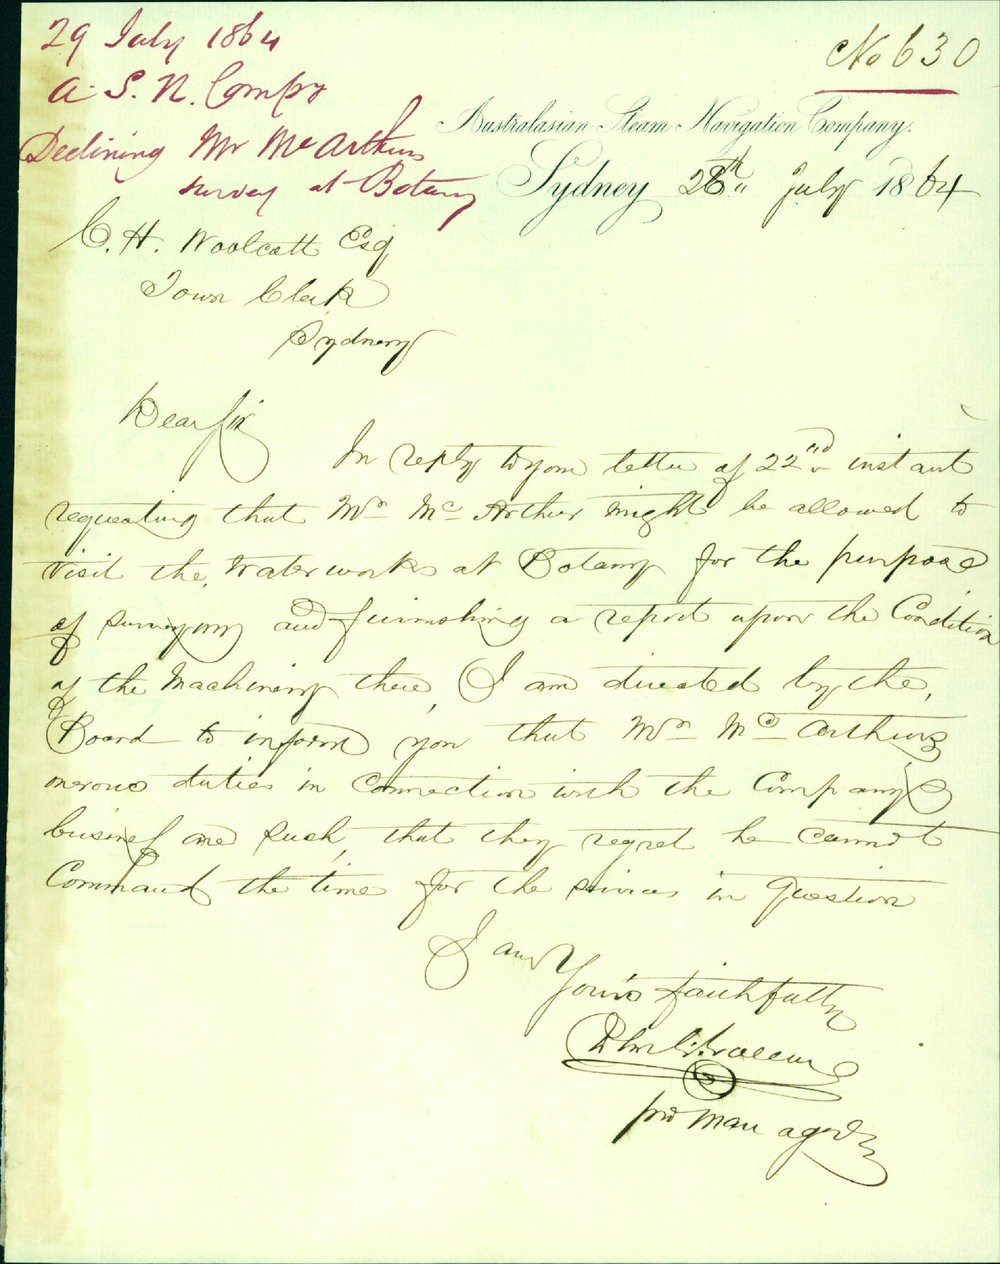 29 July 1864
No 630
A. S. N. Compy
Declining Mr McArthurs
survey at Botany
Australasian Steam Navigation Company.
Sydney 28th July 1864
C. H. Woolcott Esq
Town Clerk
Sydney
Dear Sir
In reply to your letter of 22nd instant
requesting that Mr McArthur might be allowed to
visit the Waterworks at Botany for the purpose
of surveying and furnishing a report upon the Condition
of the Machinery there, I am directed by the
Board to inform you that Mr McArthurs
onerous duties in Connection with the Companys
business are such, that they regret he cannot
Command the time for the services in Question
I am
Yours faithfully
pro Manager